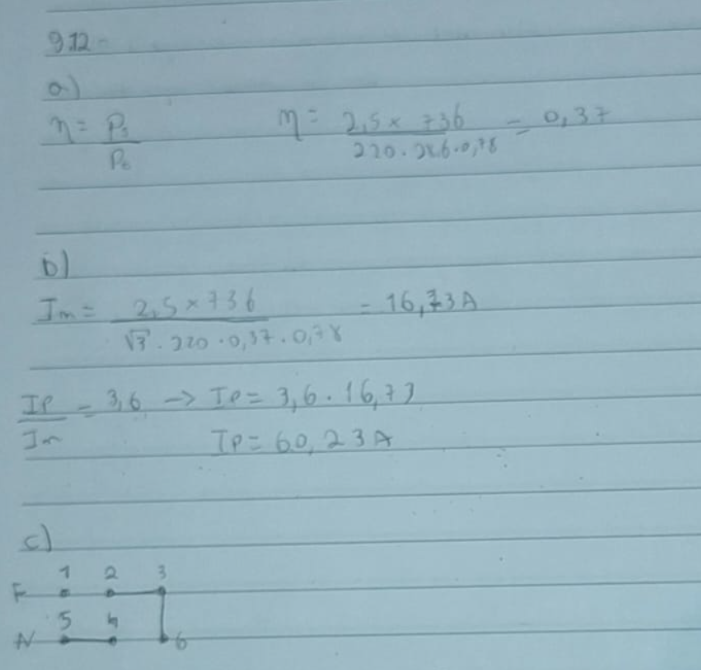 912-
a)
η = Ps / Po    η = 2,5 x 736 / 220 . 28,6 . 0,78 = 0,37
b)
Im = 2,5 x 736 / √3 . 220 . 0,37 . 0,78 = 16,73A
IP / Im = 3,6 -> IP = 3,6 . 16,73
IP = 60,23A
c)
1 2 3
F
5 4
N 6